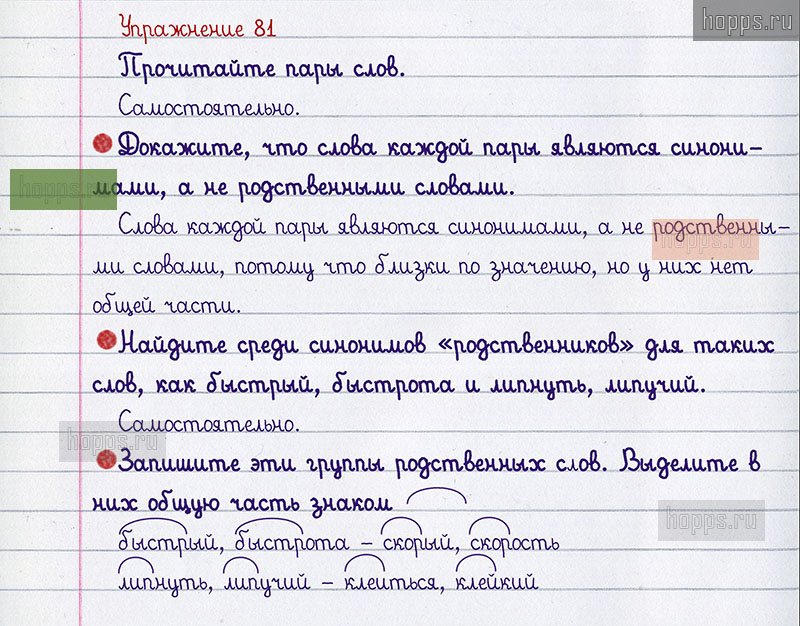 hopps.ru
Упражнение 81
Прочитайте пары слов.
Самостоятельно.
Докажите, что слова каждой пары являются синони-
hopps.ru
мами, а не родственными словами.
Слова каждой пары являются синонимами, а не родственны-
hopps.ru
ми словами, потому что близки по значению, но у них нет
общей части.
Найдите среди синонимов «родственников» для таких
слов, как быстрый, быстрота и липнуть, липучий.
Самостоятельно.
hopps.ru
Запишите эти группы родственных слов. Выделите в
них общую часть знаком
hopps.ru
быстрый, быстрота – скорый, скорость
липнуть, липучий – клеиться, клейкий